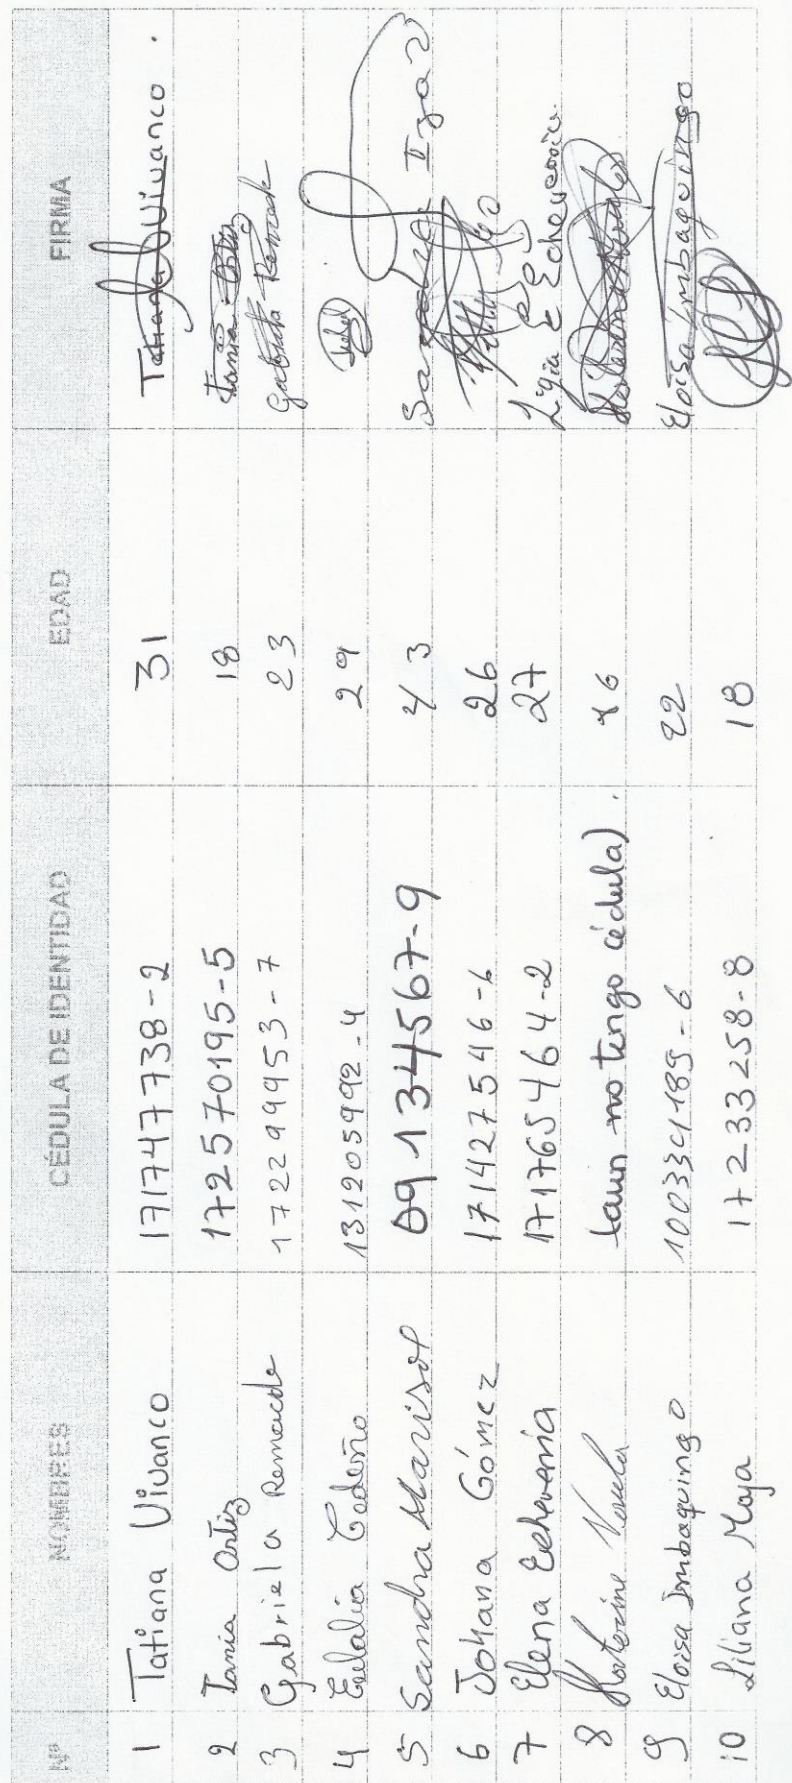 Nº NOMBRES CÉDULA DE IDENTIDAD EDAD FIRMA
1 Tatiana Vivanco 171747738-2 31 Tatiana Vivanco
2 Tania Ortiz 172570195-5 18 Tania Ortiz
3 Gabriela Remache 172299953-7 23 Gabriela Remache
4 Eulalia Cedeño 131205992-4 29
5 Sandra Marisol 09134567-9 43 Sandra
6 Johana Gómez 171427546-6 26
7 Elena Echeverría 171765464-2 27 Ligia E Echeverría
8 Katerine (aun no tengo cédula). 16
9 Eloisa Imbaquingo 100334189-6 22 Eloisa Imbaquingo
10 Liliana Moya 17233258-8 18